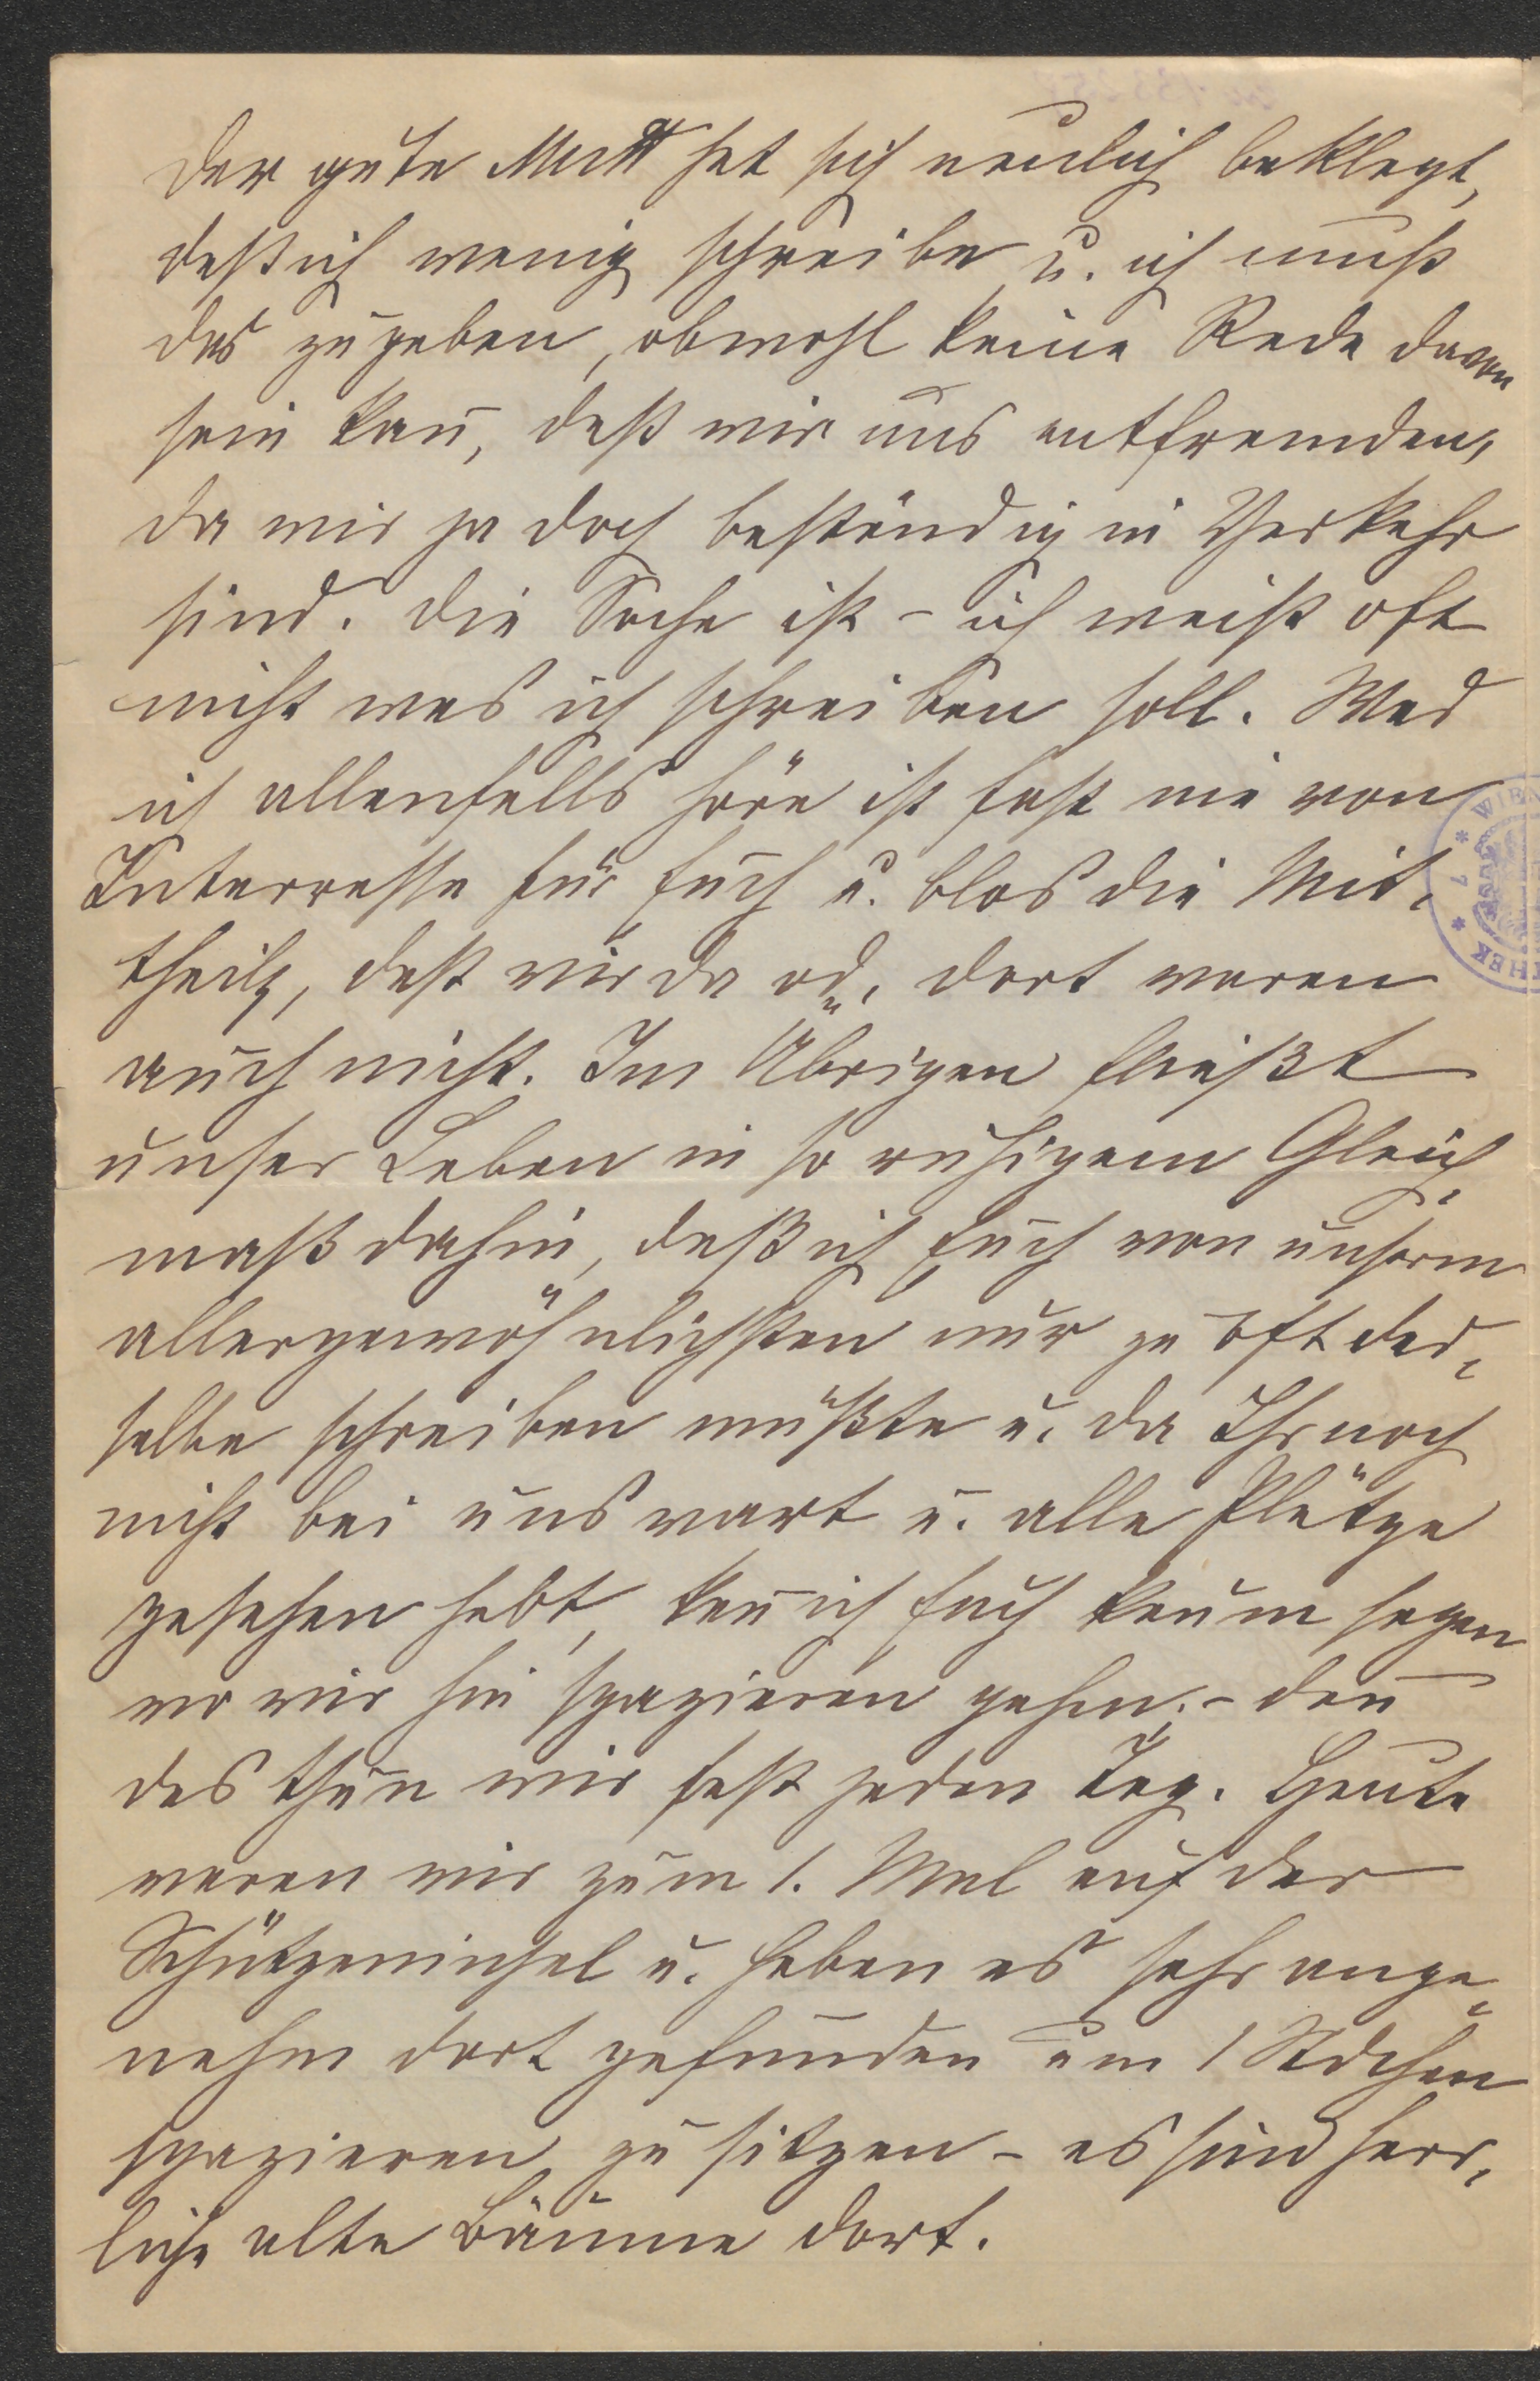 Der gute Mutt hat sich neulich beklagt,
daß ich wenig schreibe u. ich muß
das zugeben, obwohl keine Rede davon
sein kan̄, daß wir uns entfremden,
da wir ja doch beständig in Verkehr
sind. Die Sache ist – ich weiß oft
nicht was ich schreiben soll. Was
ich allenfalls höre ist fast nie von
Interresse für Euch u. blos die Mit-
theilg, daß wir da od. dort waren
auch nicht. Im Übrigen fließt
unser Leben in so ruhigem Gleich-
maß dahin, daß ich Euch von unserm
allergewöhnlichsten nur zu oft das-
selbe schreiben müßte u. da Ihr noch
nicht bei uns wart u. alle Plätze
gesehen habt, kan̄ ich Euch kaum sagen
wo wir hin spazieren gehen; – den̄
das thun wir fast jeden Tag. Heute
waren wir zum 1. Mal auf der
Schützeninsel u. haben es sehr ange-
nehm dort gefunden um 1 Stdchen
spazieren zu sitzen – es sind herr-
liche alte Bäume dort.
WIEN